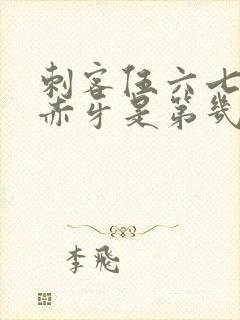 刺客伍六七
赤牙是第几
李飛